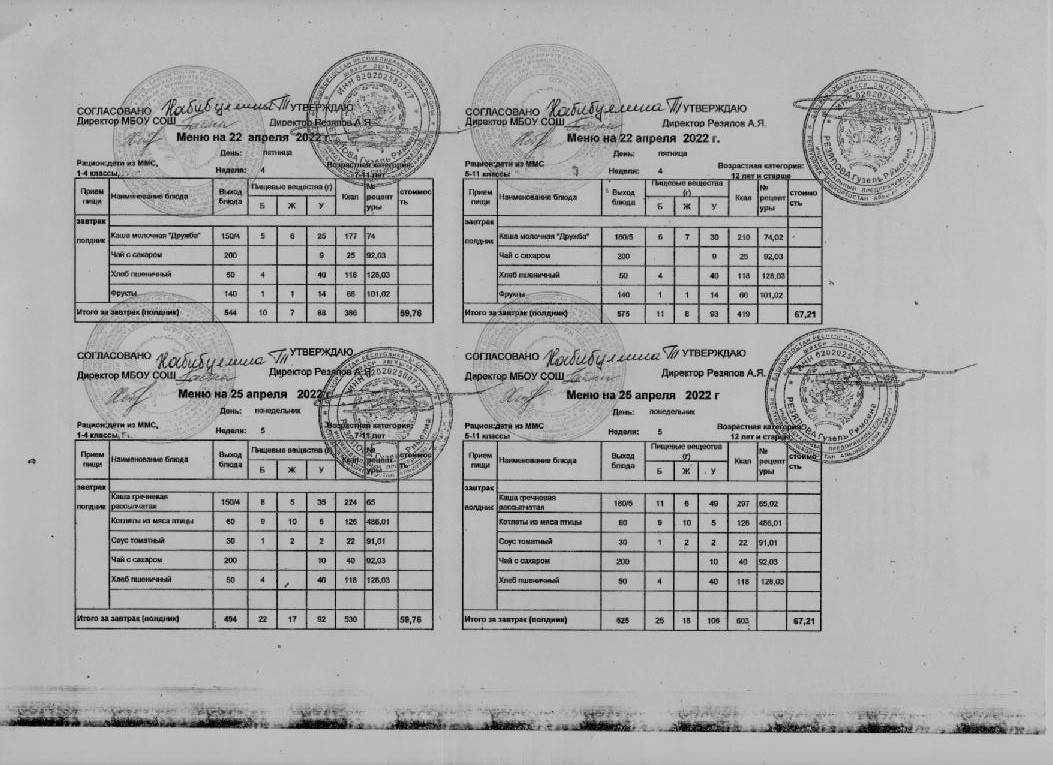 СОГЛАСОВАНО Хабибуллина Т УТВЕРЖДАЮ
Директор МБОУ СОШ Директор Резяпов А.Я.
Меню на 22 апреля 2022 г.
День: пятница
Рацион:дети из ММС, Возрастная категория:
1-4 классы, Неделя: 4 7-11 лет
Прием пищи Наименование блюда Выход блюда Пищевые вещества (г) Ккал № рецептуры стоимость
Б Ж У
завтрак
полдник Каша молочная "Дружба" 150/4 5 6 25 177 74
Чай с сахаром 200 9 25 92,03
Хлеб пшеничный 50 4 40 118 128,03
Фрукты 140 1 1 14 66 101,02
Итого за завтрак (полдник) 544 10 7 88 386 59,76
СОГЛАСОВАНО Хабибуллина Т УТВЕРЖДАЮ
Директор МБОУ СОШ Директор Резяпов А.Я.
Меню на 22 апреля 2022 г.
День: пятница
Рацион:дети из ММС Возрастная категория:
5-11 классы Неделя: 4 12 лет и старше
Прием пищи Наименование блюда Выход блюда Пищевые вещества (г) Ккал № рецептуры стоимость
Б Ж У
завтрак
полдник Каша молочная "Дружба" 180/5 6 7 30 210 74,02
Чай с сахаром 200 9 25 92,03
Хлеб пшеничный 50 4 40 118 128,03
Фрукты 140 1 1 14 66 101,02
Итого за завтрак (полдник) 575 11 8 93 419 67,21
СОГЛАСОВАНО Хабибуллина Т УТВЕРЖДАЮ
Директор МБОУ СОШ Директор Резяпов А.Я.
Меню на 25 апреля 2022 г
День: понедельник
Рацион:дети из ММС, Возрастная категория:
1-4 классы, Неделя: 5 7-11 лет
Прием пищи Наименование блюда Выход блюда Пищевые вещества (г) Ккал № рецептуры стоимость
Б Ж У
завтрак
полдник Каша гречневая рассыпчатая 150/4 8 5 35 224 65
Котлеты из мяса птицы 60 9 10 5 126 486,01
Соус томатный 30 1 2 2 22 91,01
Чай с сахаром 200 10 40 92,03
Хлеб пшеничный 50 4 40 118 128,03
Итого за завтрак (полдник) 494 22 17 92 530 59,76
СОГЛАСОВАНО Хабибуллина Т УТВЕРЖДАЮ
Директор МБОУ СОШ Директор Резяпов А.Я.
Меню на 25 апреля 2022 г
День: понедельник
Рацион:дети из ММС, Возрастная категория:
5-11 классы Неделя: 5 12 лет и старше
Прием пищи Наименование блюда Выход блюда Пищевые вещества (г) Ккал № рецептуры стоимость
Б Ж У
завтрак
полдник Каша гречневая рассыпчатая 180/5 11 6 49 297 65,02
Котлеты из мяса птицы 60 9 10 5 126 486,01
Соус томатный 30 1 2 2 22 91,01
Чай с сахаром 200 10 40 92,03
Хлеб пшеничный 50 4 40 118 128,03
Итого за завтрак (полдник) 525 25 18 106 603 67,21